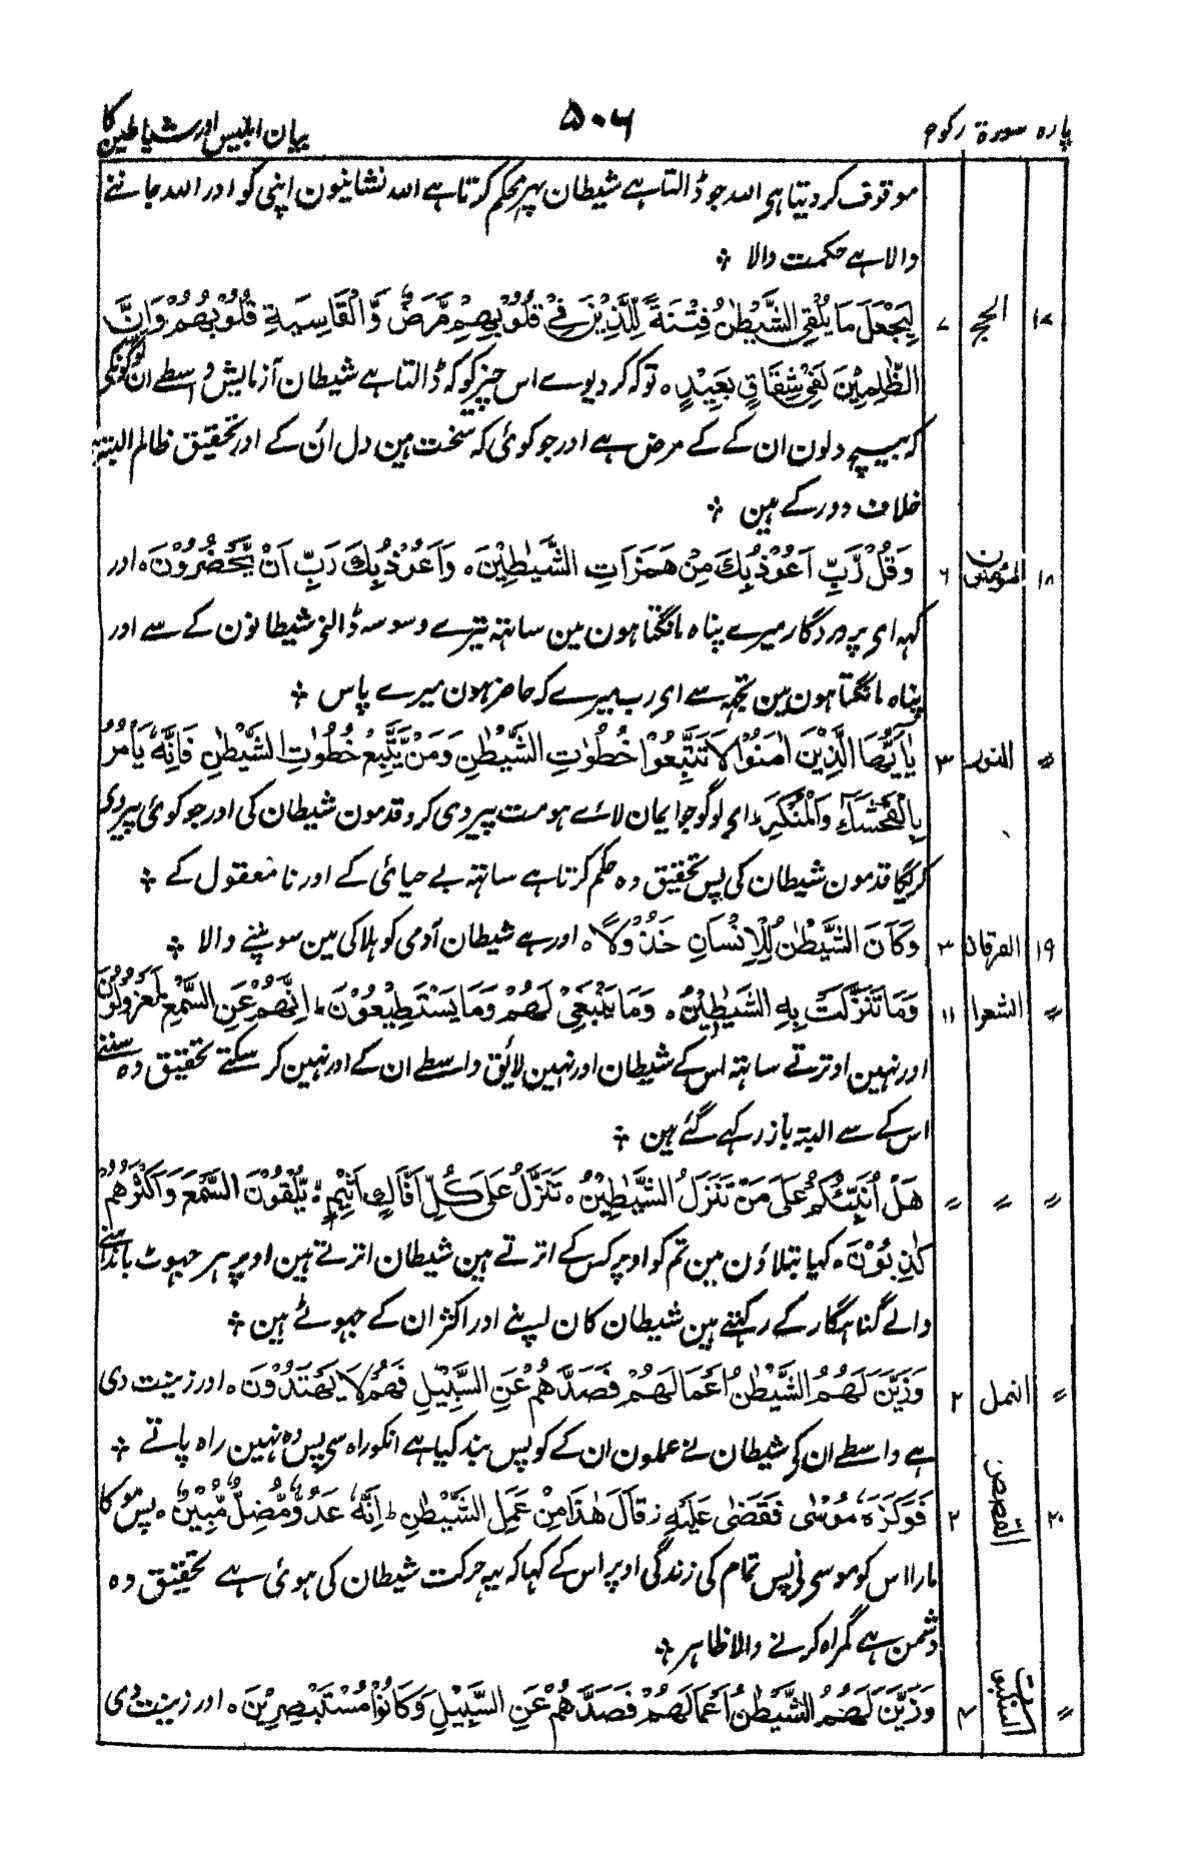 پارہ سورۃ رکوع ۵۰۶ بیان ابلیس اور شیاطین کا
موقوف کر دیتا ہی اللہ جو ڈالتا ہے شیطان پہر محکم کرتا ہے اللہ نشانیون اپنی کو اور اللہ جاننے
والا ہے حکمت والا ۞
۱۷ الحج ۷ لِيَجْعَلَ مَا يُلْقِى الشَّيْطٰنُ فِتْنَةً لِّلَّذِيْنَ فِىْ قُلُوْبِهِمْ مَّرَضٌ وَّالْقَاسِيَةِ قُلُوْبُهُمْ وَاِنَّ
الظّٰلِمِيْنَ لَفِىْ شِقَاقٍ بَعِيْدٍ ہ تو کہ کر دیوے اس چیز کو کہ ڈالتا ہے شیطان آزمایش واسطے ان لوگونکی
کہ بیچ دلون ان کے کے مرض ہے اور جو کوئی کہ سخت ہین دل ان کے اور تحقیق ظالم البتہ بیچ
خلاف دور کے ہین ۞
۱۸ المؤمنون ۶ وَقُلْ رَّبِّ اَعُوْذُ بِكَ مِنْ هَمَزَاتِ الشَّيٰطِيْنِ ہ وَاَعُوْذُ بِكَ رَبِّ اَنْ يَّحْضُرُوْنَ ہ اور
کہہ ای پروردگار میرے پناہ مانگتا ہون مین ساتہ تیرے وسوسہ ڈالنی شیطانون کے سے اور
پناہ مانگتا ہون مین تجہہ سے ای رب میرے کہ حاضر ہون میرے پاس ۞
〃 النور ۳ يٰاَيُّهَا الَّذِيْنَ اٰمَنُوْا لَا تَتَّبِعُوْا خُطُوٰتِ الشَّيْطٰنِ وَمَنْ يَّتَّبِعْ خُطُوٰتِ الشَّيْطٰنِ فَاِنَّهٗ يَاْمُرُ
بِالْفَحْشَآءِ وَالْمُنْكَرِ ط ای لوگو جو ایمان لائے ہو مت پیروی کرو قدمون شیطان کی اور جو کوئی پیروی
کریگا قدمون شیطان کی پس تحقیق وہ حکم کرتا ہے ساتہ بے حیائی کے اور نا معقول کے ۞
۱۹ الفرقان ۳ وَكَانَ الشَّيْطٰنُ لِلْاِنْسَانِ خَذُوْلًا ہ اور ہے شیطان آدمی کو ہلاکی مین سونپنے والا ۞
〃 الشعرا ۱۱ وَمَا تَنَزَّلَتْ بِهِ الشَّيٰطِيْنُ ہ وَمَا يَنْبَغِىْ لَهُمْ وَمَا يَسْتَطِيْعُوْنَ ط اِنَّهُمْ عَنِ السَّمْعِ لَمَعْزُوْلُوْنَ
اور نہین اوترتے ساتہ اس کے شیطان اور نہین لائق واسطے ان کے اور نہین کر سکتے تحقیق وہ سننے
اس کے سے البتہ باز رکہے گئے ہین ۞
〃 〃 〃 هَلْ اُنَبِّئُكُمْ عَلٰى مَنْ تَنَزَّلُ الشَّيٰطِيْنُ ہ تَنَزَّلُ عَلٰى كُلِّ اَفَّاكٍ اَثِيْمٍ ہ يُّلْقُوْنَ السَّمْعَ وَاَكْثَرُهُمْ
كٰذِبُوْنَ ہ کہیا بتلاؤن مین تم کو اوپر کس کے اترتے ہین شیطان اترتے ہین اوپر ہر جہوٹ باندہنے
والے گناہگار کے رکہتے ہین شیطان کان اپنے اور اکثر ان کے جہوٹے ہین ۞
〃 النمل ۲ وَزَيَّنَ لَهُمُ الشَّيْطٰنُ اَعْمَالَهُمْ فَصَدَّهُمْ عَنِ السَّبِيْلِ فَهُمْ لَا يَهْتَدُوْنَ ہ اور زینت دی
ہے واسطے ان کی شیطان نے عملون ان کے کو پس بند کیا ہے انکو راہ سی پس وہ نہین راہ پاتے ۞
۲۰ القصص ۲ فَوَكَزَهٗ مُوْسٰى فَقَضٰى عَلَيْهِ ز قَالَ هٰذَا مِنْ عَمَلِ الشَّيْطٰنِ ط اِنَّهٗ عَدُوٌّ مُّضِلٌّ مُّبِيْنٌ ہ پس مکا
مارا اس کو موسی نی پس تمام کی زندگی اوپر اس کے کہا کہ یہ حرکت شیطان کی ہوئی ہے تحقیق وہ
دشمن ہے گمراہ کرنے والا ظاہر ۞
〃 العنکبوت ۴ وَزَيَّنَ لَهُمُ الشَّيْطٰنُ اَعْمَالَهُمْ فَصَدَّهُمْ عَنِ السَّبِيْلِ وَكَانُوْا مُسْتَبْصِرِيْنَ ہ اور زینت دی